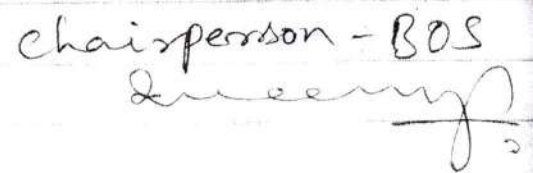 Chairperson - BOS